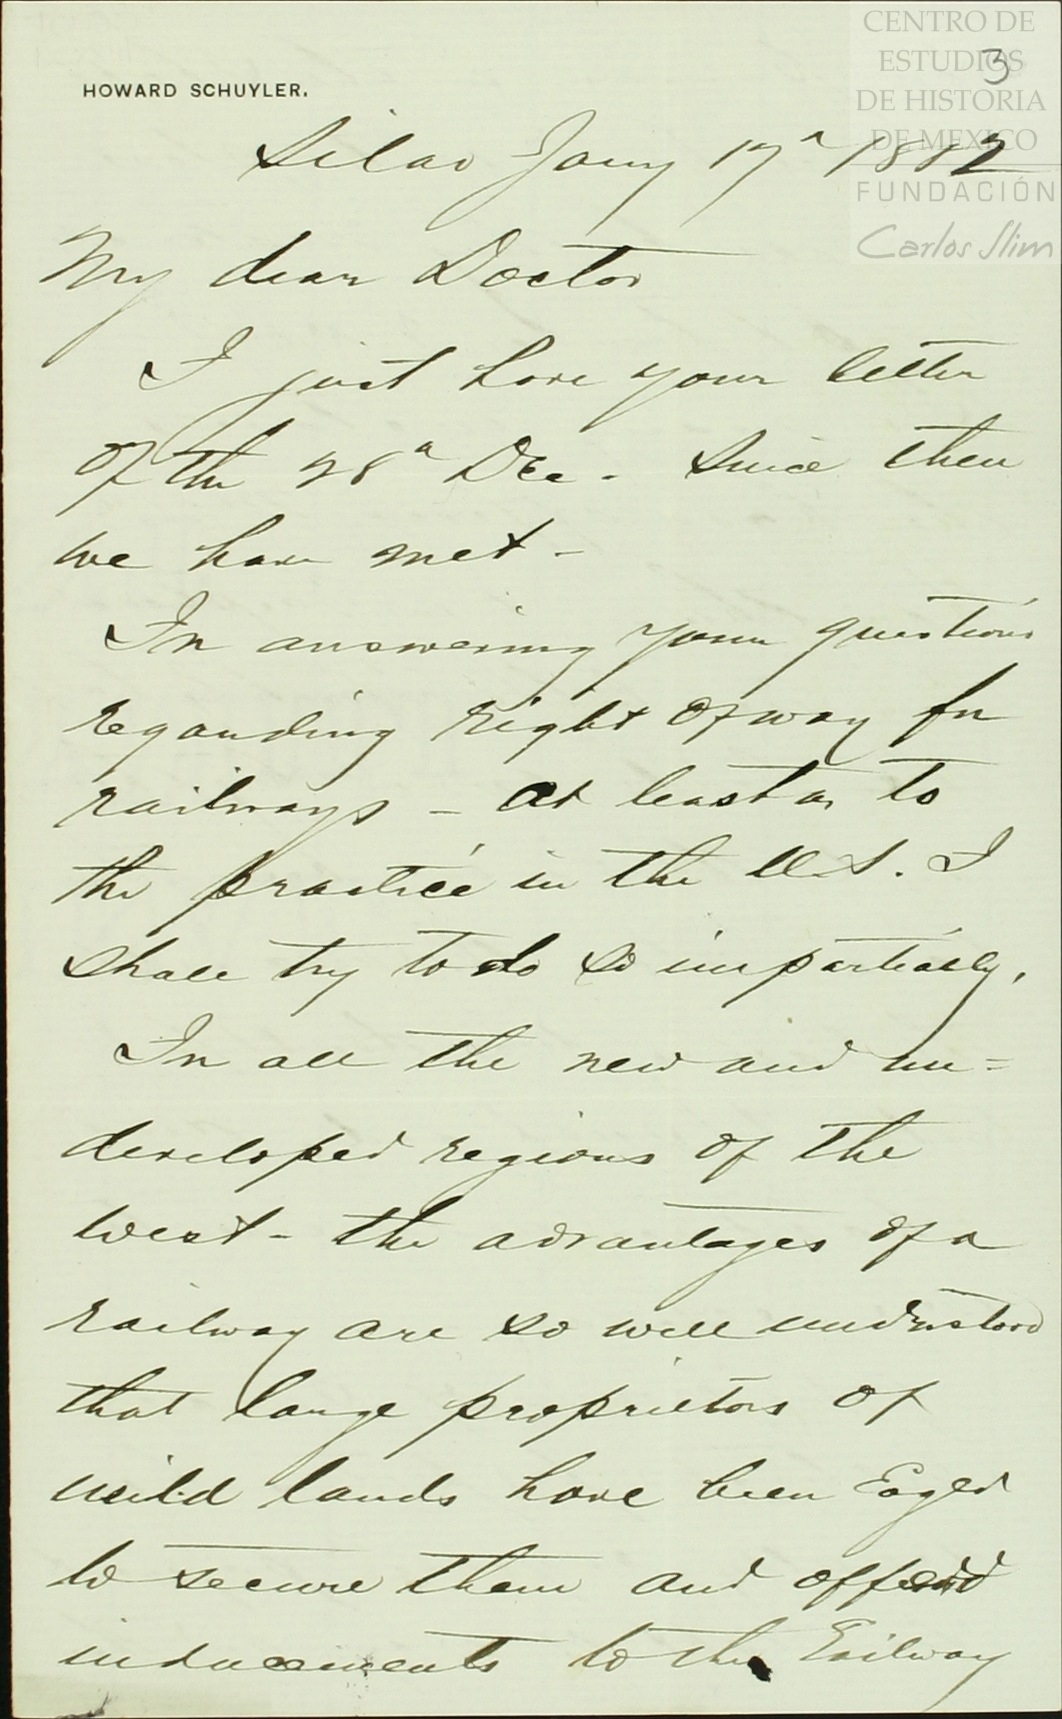 CENTRO DE
ESTUDIOS
DE HISTORIA
DE MEXICO
FUNDACIÓN
Carlos Slim
3
HOWARD SCHUYLER.
Silao Jany 17" 1882
My dear Doctor
I just have your letter
of the 28" Dec. Since then
we have met -
In answering your questions
regarding right of way for
railways - at least as to
the practice in the U.S. I
shall try to do so impartially.
In all the new and un=
developed regions of the
west - the advantages of a
railway are so well understood
that large proprietors of
wild lands have been Eager
to secure them and offered
inducements to the Railway